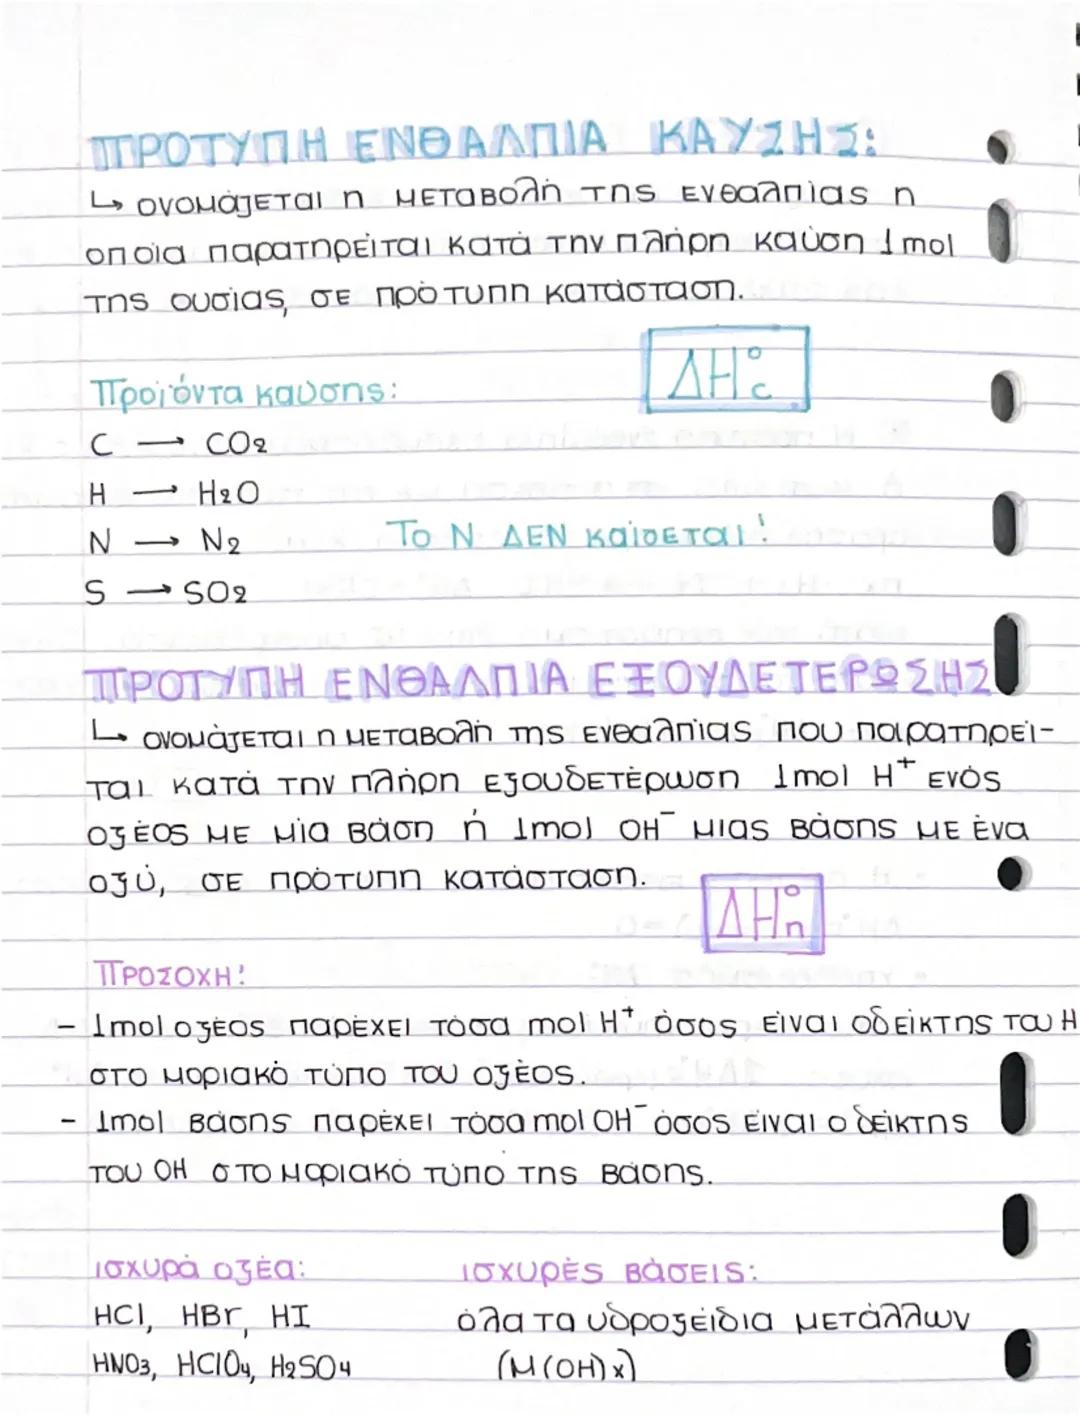 ΠΡΟΤΥΠΗ ΕΝΘΑΛΠΙΑ ΚΑΥΣΗΣ:
↳ ονομάζεται η μεταβολή της ενθαλπίας η
οποία παρατηρείται κατά την πλήρη καύση 1 mol
της ουσίας, σε πρότυπη κατάσταση.
ΔH°c
Προϊόντα καύσης:
C → CO2
H → H2O
N → N2 Το Ν ΔΕΝ καίγεται!
S → SO2
ΠΡΟΤΥΠΗ ΕΝΘΑΛΠΙΑ ΕΞΟΥΔΕΤΕΡΩΣΗΣ
↳ ονομάζεται η μεταβολή της ενθαλπίας που παρατηρεί-
ται κατά την πλήρη εξουδετέρωση 1mol H⁺ ενός
οξέος με μία βάση ή 1mol OH⁻ μιας βάσης με ένα
οξύ, σε πρότυπη κατάσταση.
ΔH°n
ΠΡΟΣΟΧΗ!
- 1mol οξέος παρέχει τόσα mol H⁺ όσος είναι ο δείκτης του H
στο μοριακό τύπο του οξέος.
- 1mol βάσης παρέχει τόσα mol OH⁻ όσος είναι ο δείκτης
του OH στο μοριακό τύπο της βάσης.
ισχυρά οξέα: ισχυρές βάσεις:
HCl, HBr, HI όλα τα υδροξείδια μετάλλων
HNO3, HClO4, H2SO4 (M(OH)x)